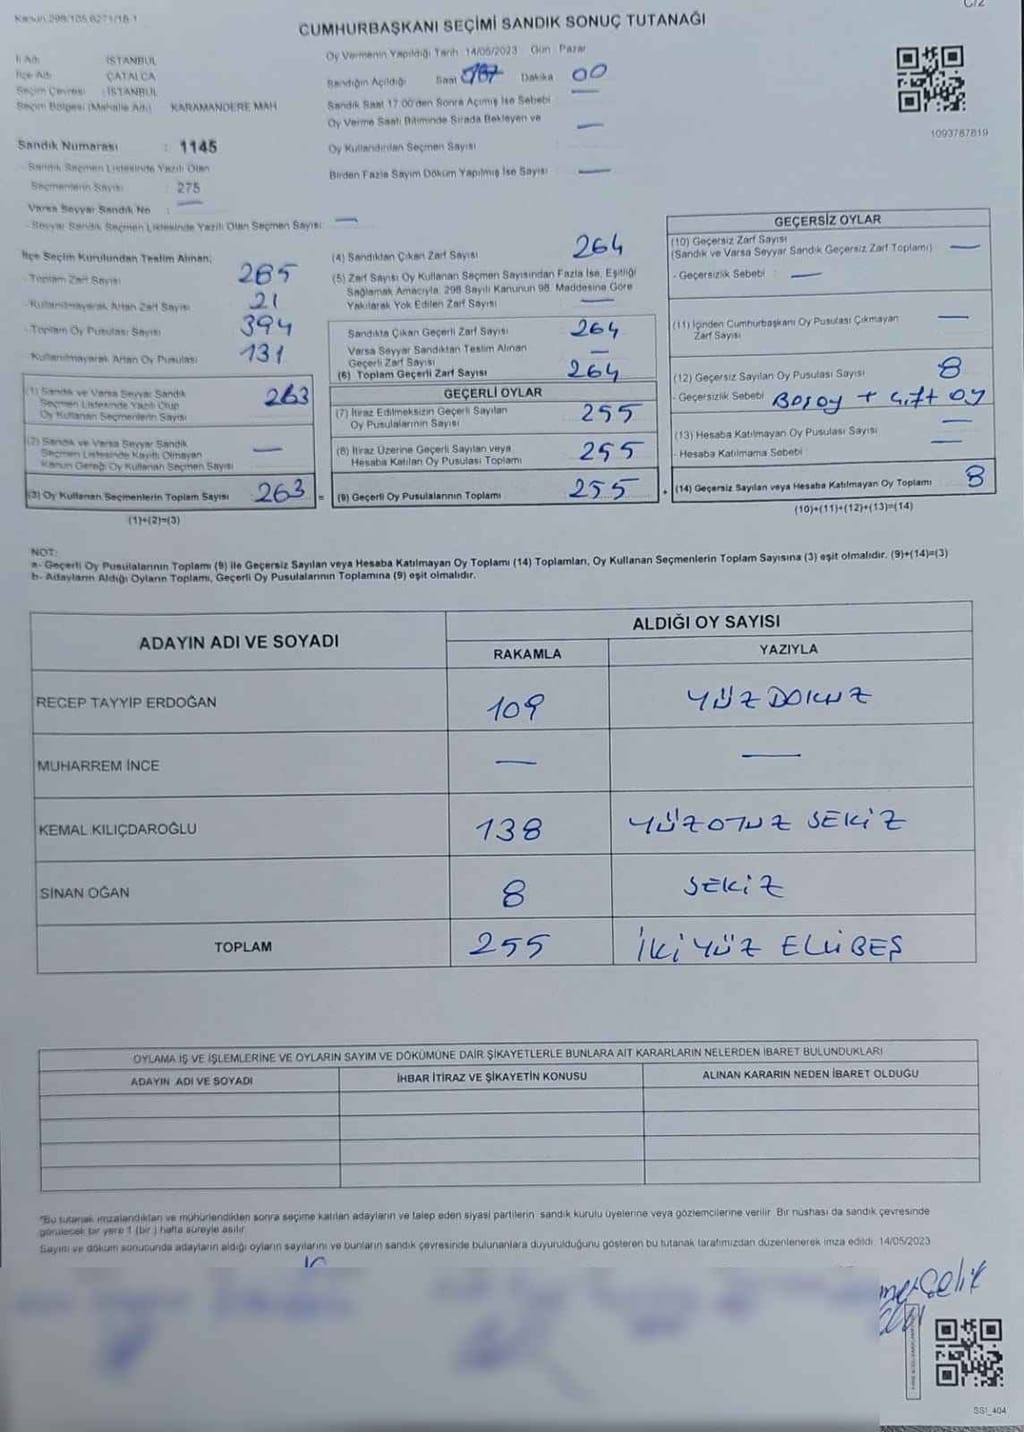 Kanun 298/105,6271/18-1
C/2
CUMHURBAŞKANI SEÇİMİ SANDIK SONUÇ TUTANAĞI
İl Adı : İSTANBUL
İlçe Adı : ÇATALCA
Seçim Çevresi : İSTANBUL
Seçim Bölgesi (Mahalle Adı) : KARAMANDERE MAH
Sandık Numarası : 1145
- Sandık Seçmen Listesinde Yazılı Olan
Seçmenlerin Sayısı : 275
Varsa Seyyar Sandık No : —
- Seyyar Sandık Seçmen Listesinde Yazılı Olan Seçmen Sayısı : —
Oy Vermenin Yapıldığı Tarih 14/05/2023 Gün : Pazar
Sandığın Açıldığı Saat Dakika 00
Sandık Saat 17:00'den Sonra Açılmış İse Sebebi —
Oy Verme Saati Bitiminde Sırada Bekleyen ve —
Oy Kullandırılan Seçmen Sayısı
Birden Fazla Sayım Döküm Yapılmış İse Sayısı —
1093787819
İlçe Seçim Kurulundan Teslim Alınan;
- Toplam Zarf Sayısı 285
- Kullanılmayarak Artan Zarf Sayısı 21
- Toplam Oy Pusulası Sayısı 394
- Kullanılmayarak Artan Oy Pusulası 131
(1) Sandık ve Varsa Seyyar Sandık
Seçmen Listesinde Yazılı Olup
Oy Kullanan Seçmenlerin Sayısı 263
(2) Sandık ve Varsa Seyyar Sandık
Seçmen Listesinde Kayıtlı Olmayan
Kanun Gereği Oy Kullanan Seçmen Sayısı —
(3) Oy Kullanan Seçmenlerin Toplam Sayısı 263 =
(1)+(2)=(3)
(4) Sandıktan Çıkan Zarf Sayısı 264
(5) Zarf Sayısı Oy Kullanan Seçmen Sayısından Fazla İse, Eşitliği
Sağlamak Amacıyla, 298 Sayılı Kanunun 98. Maddesine Göre
Yakılarak Yok Edilen Zarf Sayısı —
Sandıkta Çıkan Geçerli Zarf Sayısı 264
Varsa Seyyar Sandıktan Teslim Alınan
Geçerli Zarf Sayısı —
(6) Toplam Geçerli Zarf Sayısı 264
GEÇERLİ OYLAR
(7) İtiraz Edilmeksizin Geçerli Sayılan
Oy Pusulalarının Sayısı 255
(8) İtiraz Üzerine Geçerli Sayılan veya
Hesaba Katılan Oy Pusulası Toplamı 255
(9) Geçerli Oy Pusulalarının Toplamı 255 +
GEÇERSİZ OYLAR
(10) Geçersiz Zarf Sayısı
(Sandık ve Varsa Seyyar Sandık Geçersiz Zarf Toplamı) —
- Geçersizlik Sebebi : —
(11) İçinden Cumhurbaşkanı Oy Pusulası Çıkmayan
Zarf Sayısı —
(12) Geçersiz Sayılan Oy Pusulası Sayısı 8
- Geçersizlik Sebebi Boşoy + Çift oy
(13) Hesaba Katılmayan Oy Pusulası Sayısı —
- Hesaba Katılmama Sebebi —
(14) Geçersiz Sayılan veya Hesaba Katılmayan Oy Toplamı 8
(10)+(11)+(12)+(13)=(14)
NOT:
a- Geçerli Oy Pusulalarının Toplamı (9) ile Geçersiz Sayılan veya Hesaba Katılmayan Oy Toplamı (14) Toplamları, Oy Kullanan Seçmenlerin Toplam Sayısına (3) eşit olmalıdır. (9)+(14)=(3)
b- Adayların Aldığı Oyların Toplamı, Geçerli Oy Pusulalarının Toplamına (9) eşit olmalıdır.
ADAYIN ADI VE SOYADI
ALDIĞI OY SAYISI
RAKAMLA YAZIYLA
RECEP TAYYİP ERDOĞAN 109 YÜZ DOKUZ
MUHARREM İNCE — —
KEMAL KILIÇDAROĞLU 138 YÜZOTUZ SEKİZ
SİNAN OĞAN 8 SEKİZ
TOPLAM 255 İKİ YÜZ ELLİBEŞ
OYLAMA İŞ VE İŞLEMLERİNE VE OYLARIN SAYIM VE DÖKÜMÜNE DAİR ŞİKAYETLERLE BUNLARA AİT KARARLARIN NELERDEN İBARET BULUNDUKLARI
ADAYIN ADI VE SOYADI İHBAR İTİRAZ VE ŞİKAYETİN KONUSU ALINAN KARARIN NEDEN İBARET OLDUĞU
*Bu tutanak imzalandıktan ve mühürlendikten sonra seçime katılan adayların ve talep eden siyasi partilerin sandık kurulu üyelerine veya gözlemcilerine verilir. Bir nüshası da sandık çevresinde
görülecek bir yere 1 (bir ) hafta süreyle asılır.
Sayım ve döküm sonucunda adayların aldığı oyların sayılarını ve bunların sandık çevresinde bulunanlara duyurulduğunu gösteren bu tutanak tarafımızdan düzenlenerek imza edildi. 14/05/2023
Çelik
SS1_404